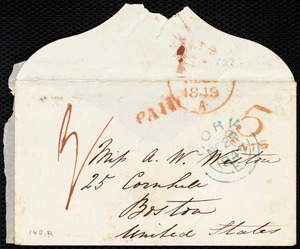 1849
A
PAID
5
CORK
Miss A. W. Weston
25 Cornhill
Boston
United States